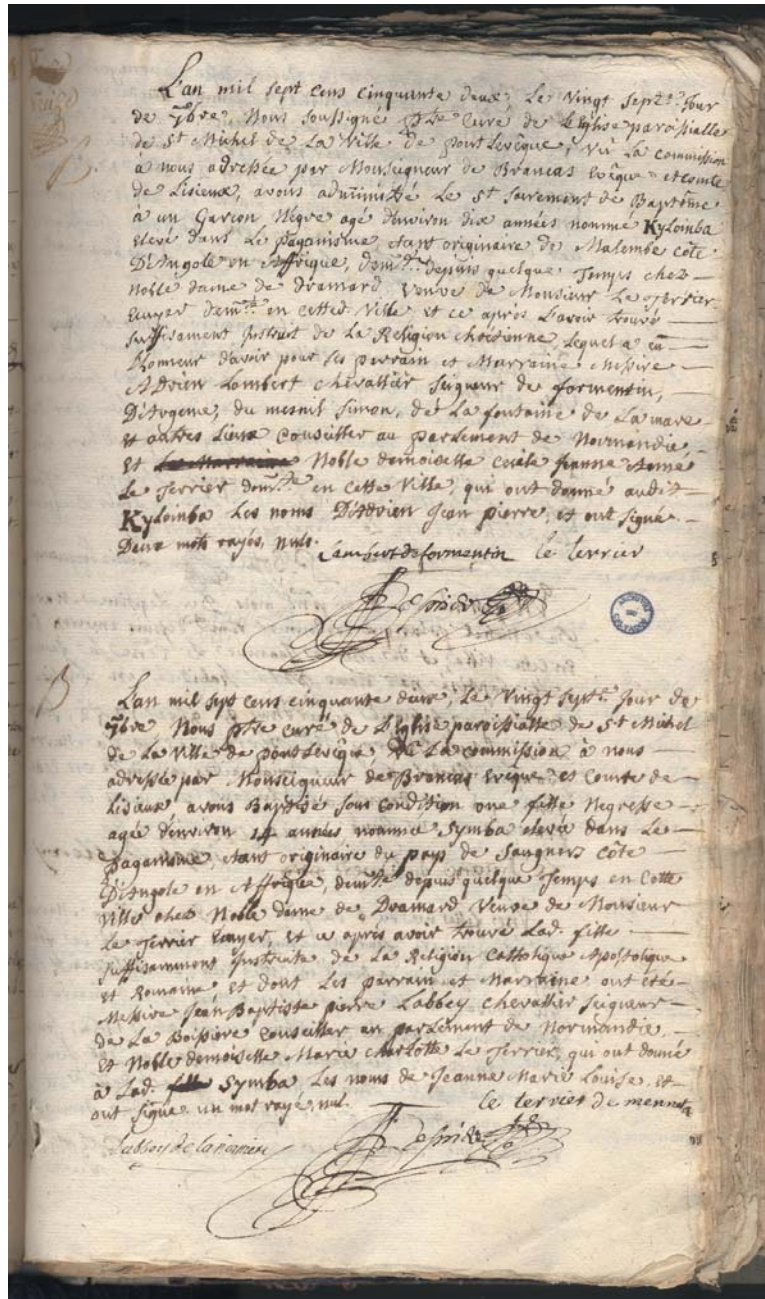 L'an mil sept cens cinquante deux, Le Vingt Sept.e Jour
de 7bre, Nous soussigné p.tre Curé de L'Eglise paroissialle
de St Michel de La Ville de pont Levêque, vû La commission
à nous adressée par Monseigneur de Brancas Evêque et comte
de Lisieux, avons administré Le St Sacrement de Baptême
à un Garçon Nègre agé d'environ dix années nommé Kyloinba
Elevé dans Le paganisme, etant originaire de Malembe côte
D'Angole en Affrique, dem.t depuis quelque Temps chez
Noble dame de Dramard, veuve de Monsieur Le Terrier
Ecuyer dem.te en cette Ville et ce après L'avoir trouvé
suffisament Instruit de La Religion chretienne, Lequel a eu
L'honneur d'avoir pour ses parrain et Marraine Messire
Adrien Lambert Chevallier Seigneur de formentin,
du mesnil Simon, de La fontaine de La mare
et autres Lieux Conseiller au parlement de Normandie,
Et La Marraine Noble demoiselle Cecile Jeanne Aimé
Le Terrier dem.te en cette Ville, qui ont donné audit
Kyloinba Les noms D'Adrien Jean pierre, et ont signé.
Deux mots rayés, nuls. Lambert de formentin le terrier
ARCHIVES CALVADOS
B
L'an mil sept cens cinquante deux, Le Vingt Sept.e Jour de
7bre Nous p.tre curé de L'Eglise paroissialle de St Michel
de La Ville de pont Levêque, Vû La commission à nous
adressée par Monseigneur de Brancas Evêque et Comte de
Lisieux avons Baptisé sous condition une fille Negresse
agée d'environ 14 années nommée Symba elevée dans Le
paganisme, etant originaire du pays de côte
D'Angole en Affrique, dem.te depuis quelque Temps en Cette
Ville chez Noble dame de Dramard Veuve de Monsieur
Le Terrier Ecuyer, et ce après avoir trouvé Lad. fille
suffisamment Instruite de La Religion Catholique Apostolique
et Romaine et dont Les parrain et Marraine ont été
Messire Jean Baptiste pierre Labbey Chevallier Seigneur
de La Boissiere Conseiller au parlement de Normandie,
Et Noble demoiselle Marie Charlotte Le Terrier, qui ont donné
à Lad. fille Symba Les noms de Jeanne Marie Louise, et
ont signé. un mot rayé, nul. le terrier de
Labbey de la